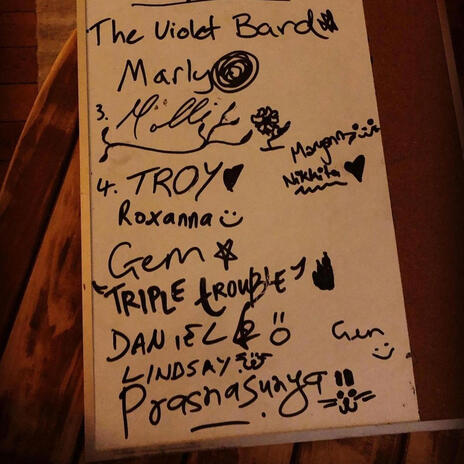 The Violet Bard
Marly
3. Mollie
Maryann
Nikhita
4. TROY
Roxanna
Gem
"TRIPLE tROUBLE"
DANIEL
Gen
LINDSAY
Prasnasunya